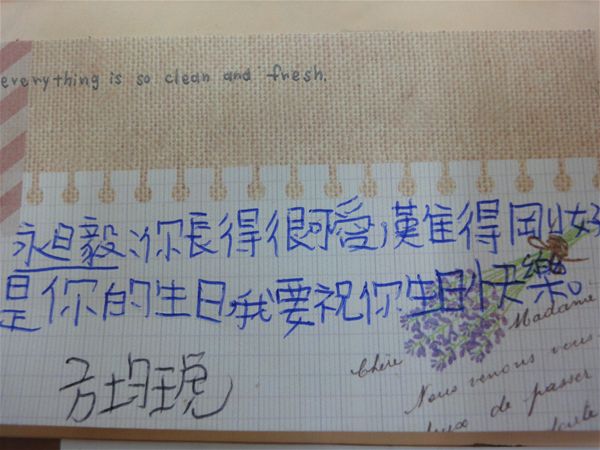 everything is so clean and fresh.
永昱毅:你長得很可愛,難得剛好
是你的生日,我要祝你生日快樂。
Chère Madame
Nous venons vous
de passer